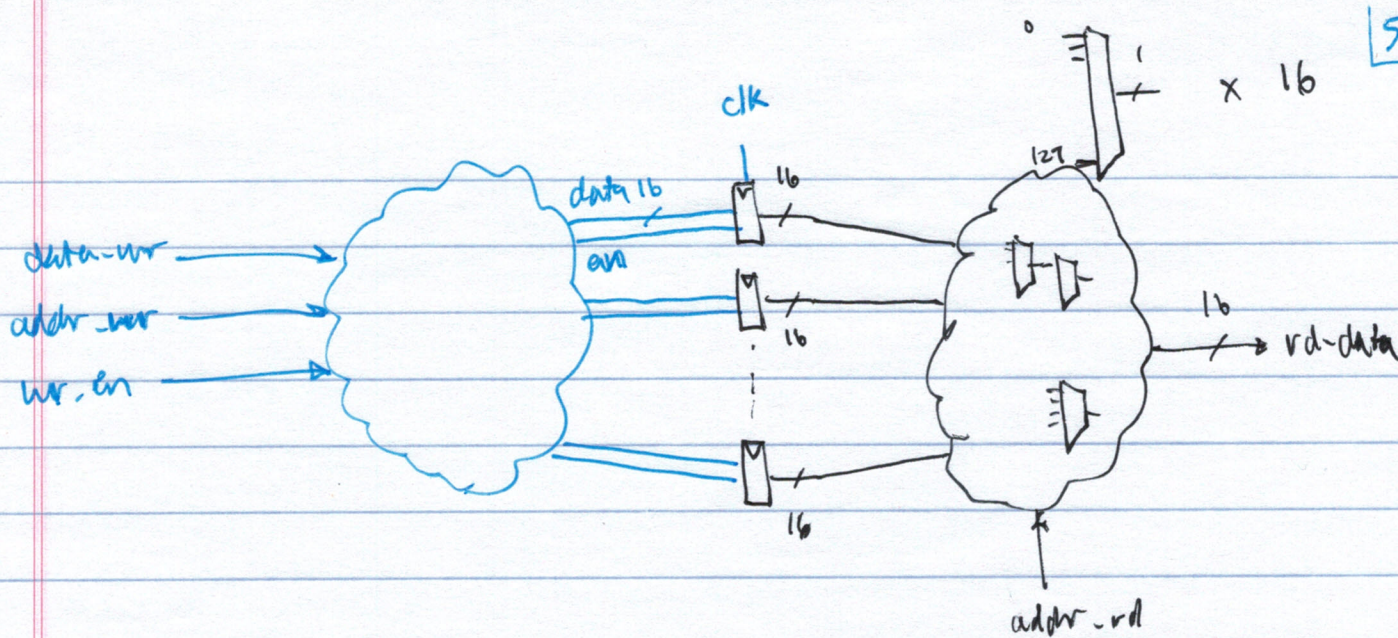 0
1
x 16
127
clk
data 16
16
en
16
16
data_wr
addr_wr
wr_en
16
rd-data
addr_rd